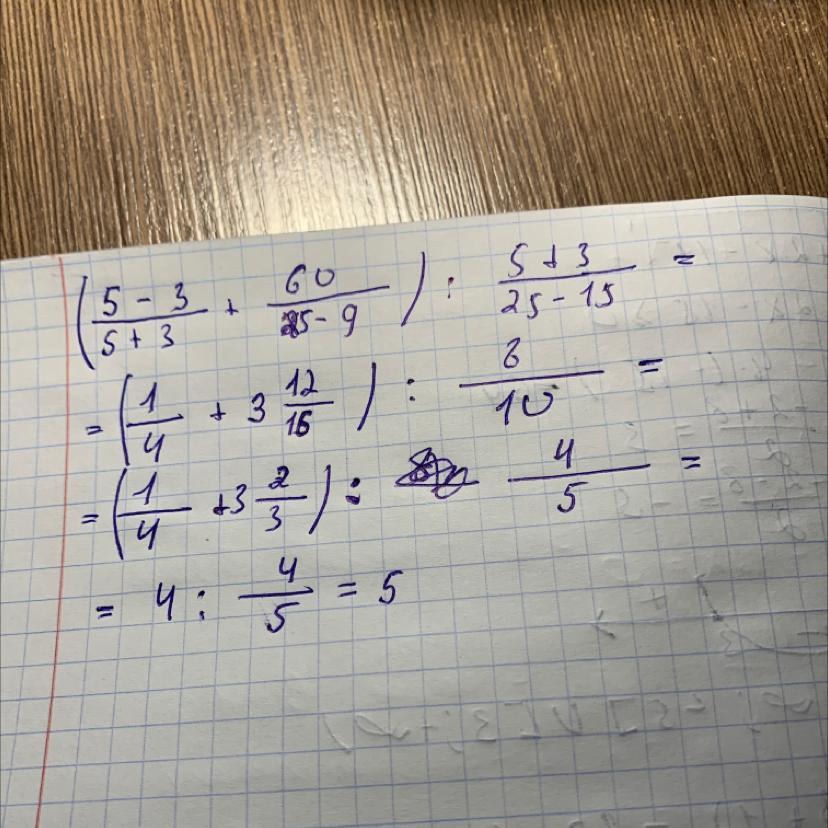 (5-3/5+3 + 60/25-9) : 5+3/25-15 =
= (1/4 + 3 12/16) : 8/10 =
= (1/4 + 3 2/3) : 4/5 =
= 4 : 4/5 = 5